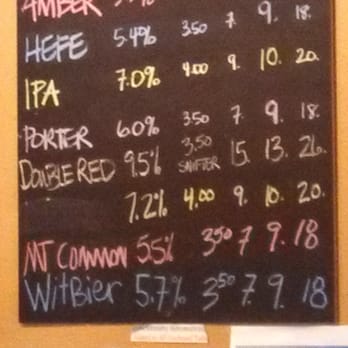 AMBER 9. 18.
HEFE 5.4% 3.50 7. 9. 18.
IPA 7.0% 4.00 9. 10. 20.
PORTER 6.0% 3.50 7. 9. 18.
DOUBLE RED 9.5% 3.50 SNIFTER 15. 13. 26.
7.2% 4.00 9. 10. 20.
MT COMMON 5.5% 3.50 7 9. 18
WITBIER 5.7% 3.50 7. 9. 18